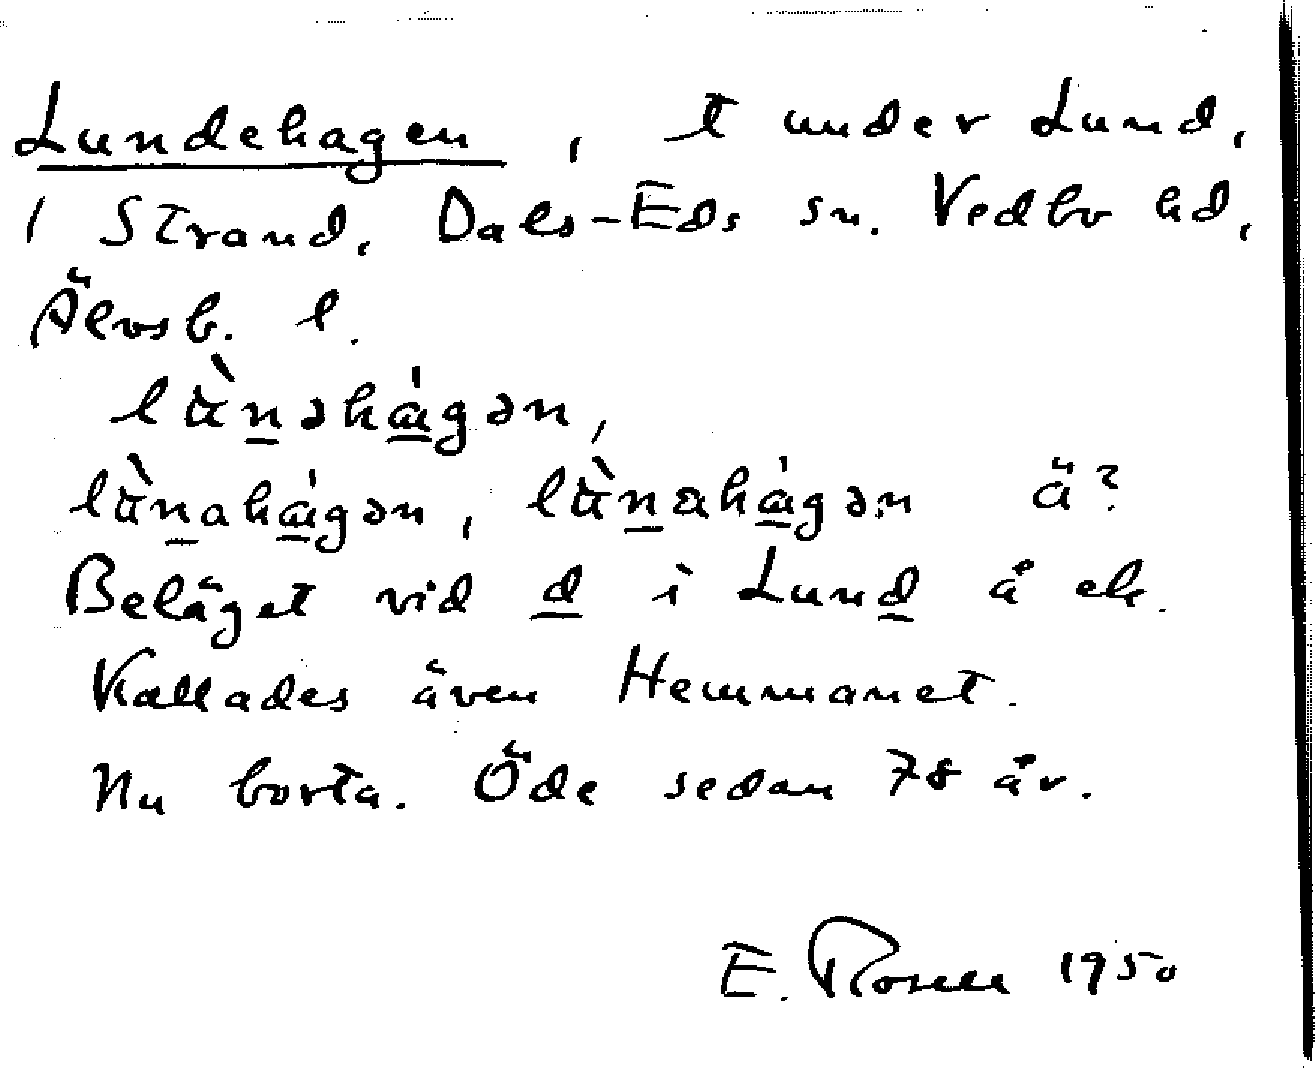 Lundehagen, t under Lund,
1 Strand, Dals-Eds sn. Vedbo hd,
Älvsb. l.
lùnəhágən,
lùnahágən, lùnahágən ä?
Beläget vid d i Lund å ek.
Kallades även Hemmanet.
Nu borta. Öde sedan 78 år.
E. Rosell 1950